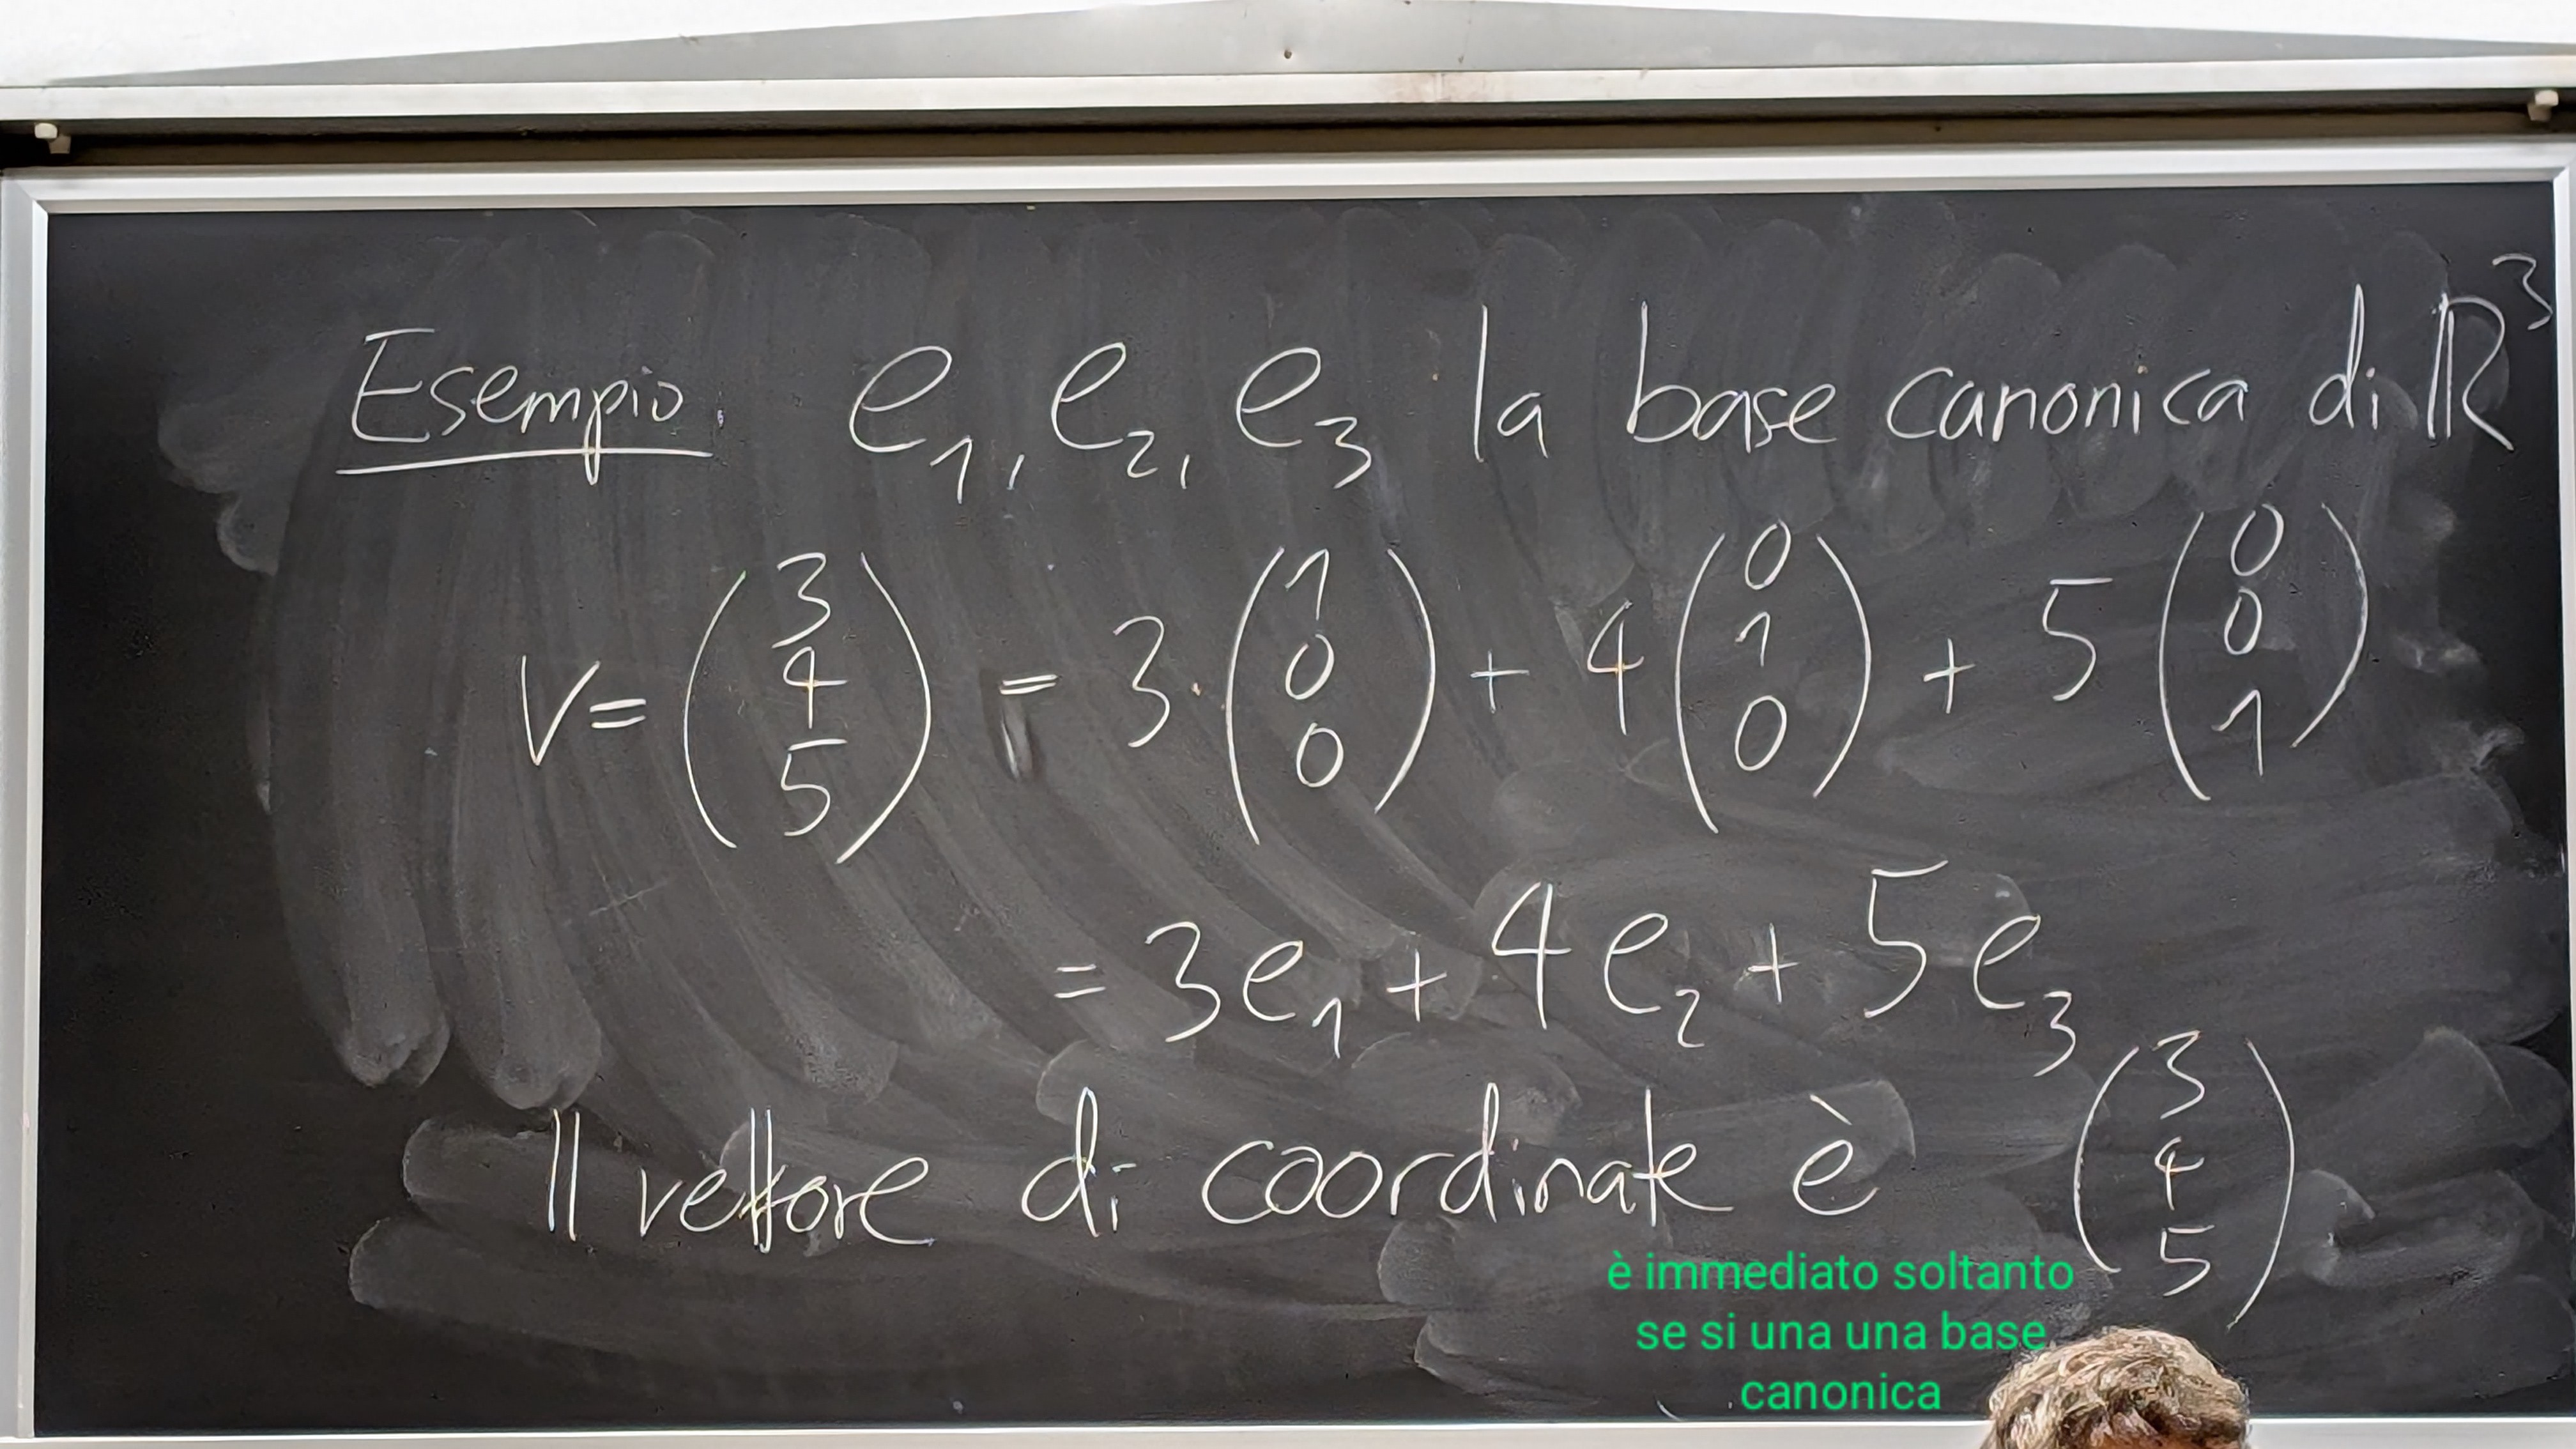 Esempio. e₁, e₂, e₃ la base canonica di ℝ³
v = (3 4 5) = 3·(1 0 0) + 4(0 1 0) + 5(0 0 1)
= 3e₁ + 4e₂ + 5e₃
Il vettore di coordinate è (3 4 5)
è immediato soltanto
se si una una base
canonica